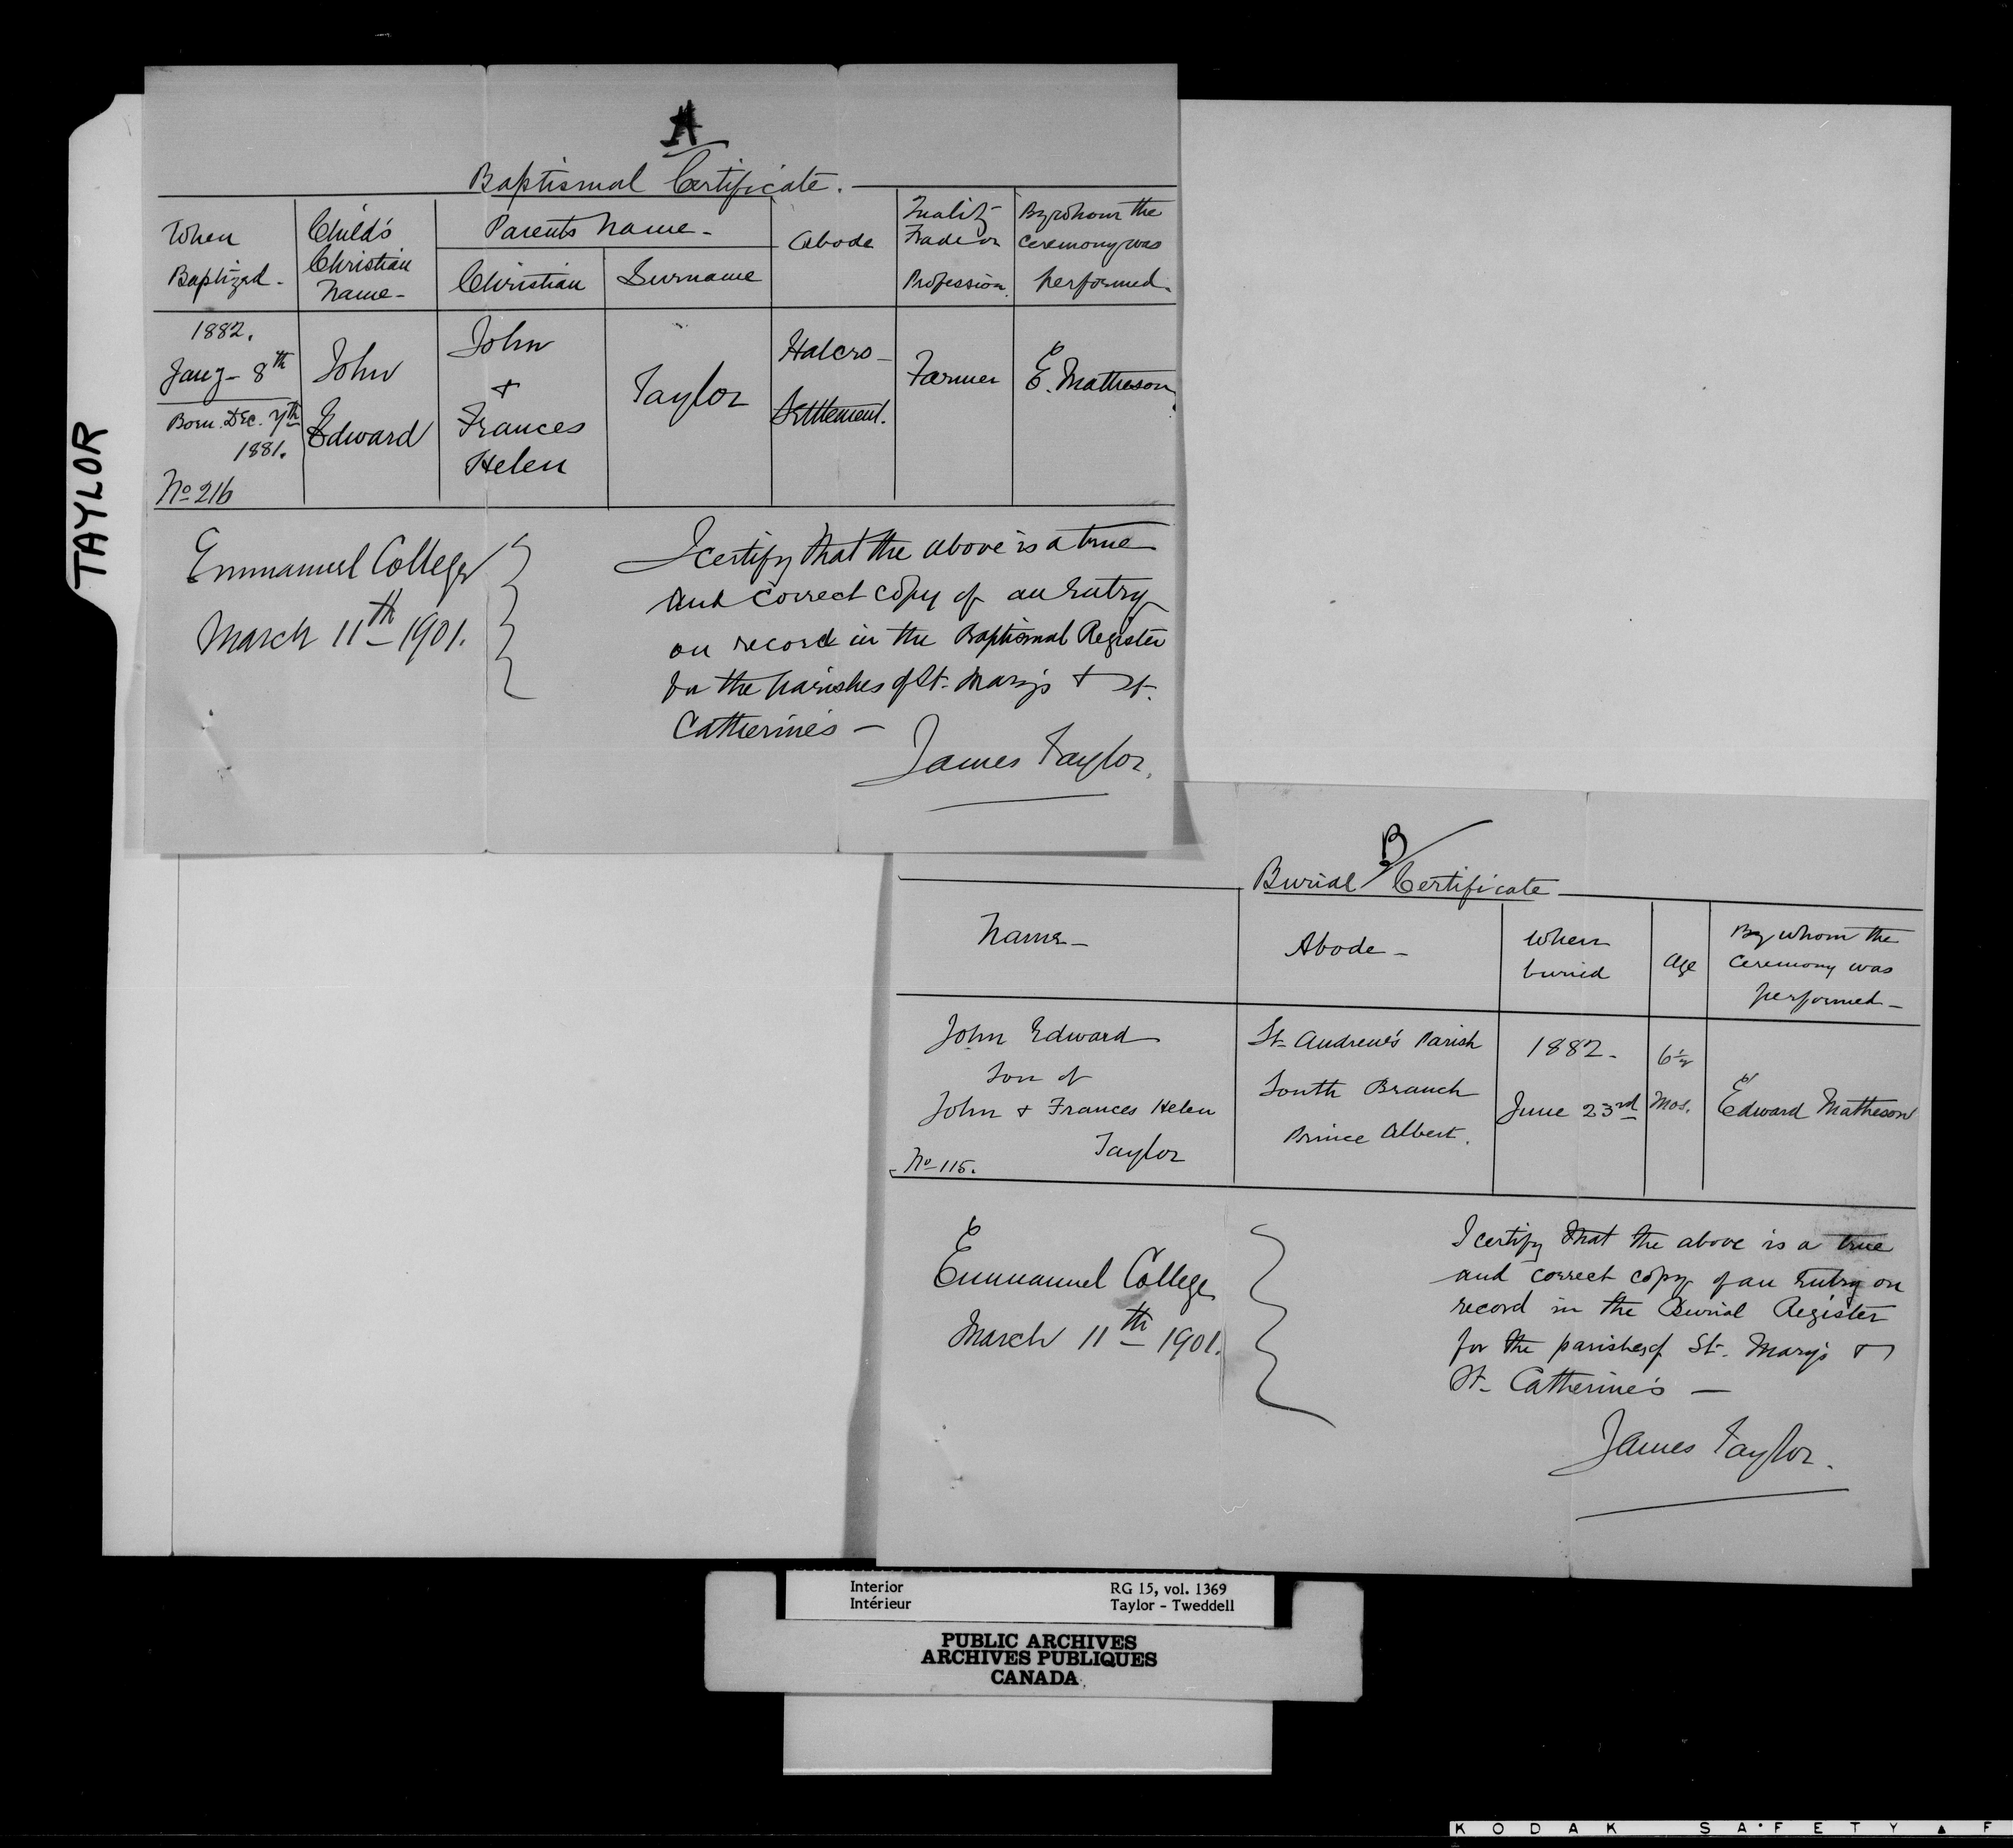 TAYLOR
A
Baptismal Certificate.
When Baptized -
Child's Christian Name -
Parents Name -
Christian
Surname
Abode
Quality Trade or Profession.
By whom the ceremony was performed -
1882.
Jany - 8th
Born Dec. 7th
1881.
No 216
John
Edward
John
+
Frances
Helen
Taylor
Halcro -
Settlement.
Farmer
E. Matheson
Emmanuel College
March 11th 1901.
I certify that the above is a true
and correct copy of an Entry
on record in the Baptismal Register
for the parishes of St. Mary's + St.
Catherine's -
James Taylor.
B
Burial Certificate
Name -
Abode -
When buried
Age
By whom the ceremony was performed -
John Edward
Son of
John + Frances Helen
Taylor
No 115.
St. Andrew's Parish
South Branch
Prince Albert.
1882 -
June 23rd
6½
Mos.
Edward Matheson
Emmanuel College
March 11th 1901.
I certify that the above is a true
and correct copy of an Entry on
record in the Burial Register
for the parishes of St. Mary's +
St. Catherine's -
James Taylor.
Interior
Intérieur
RG 15, vol. 1369
Taylor - Tweddell
PUBLIC ARCHIVES
ARCHIVES PUBLIQUES
CANADA
KODAK SAFETY ▲ F